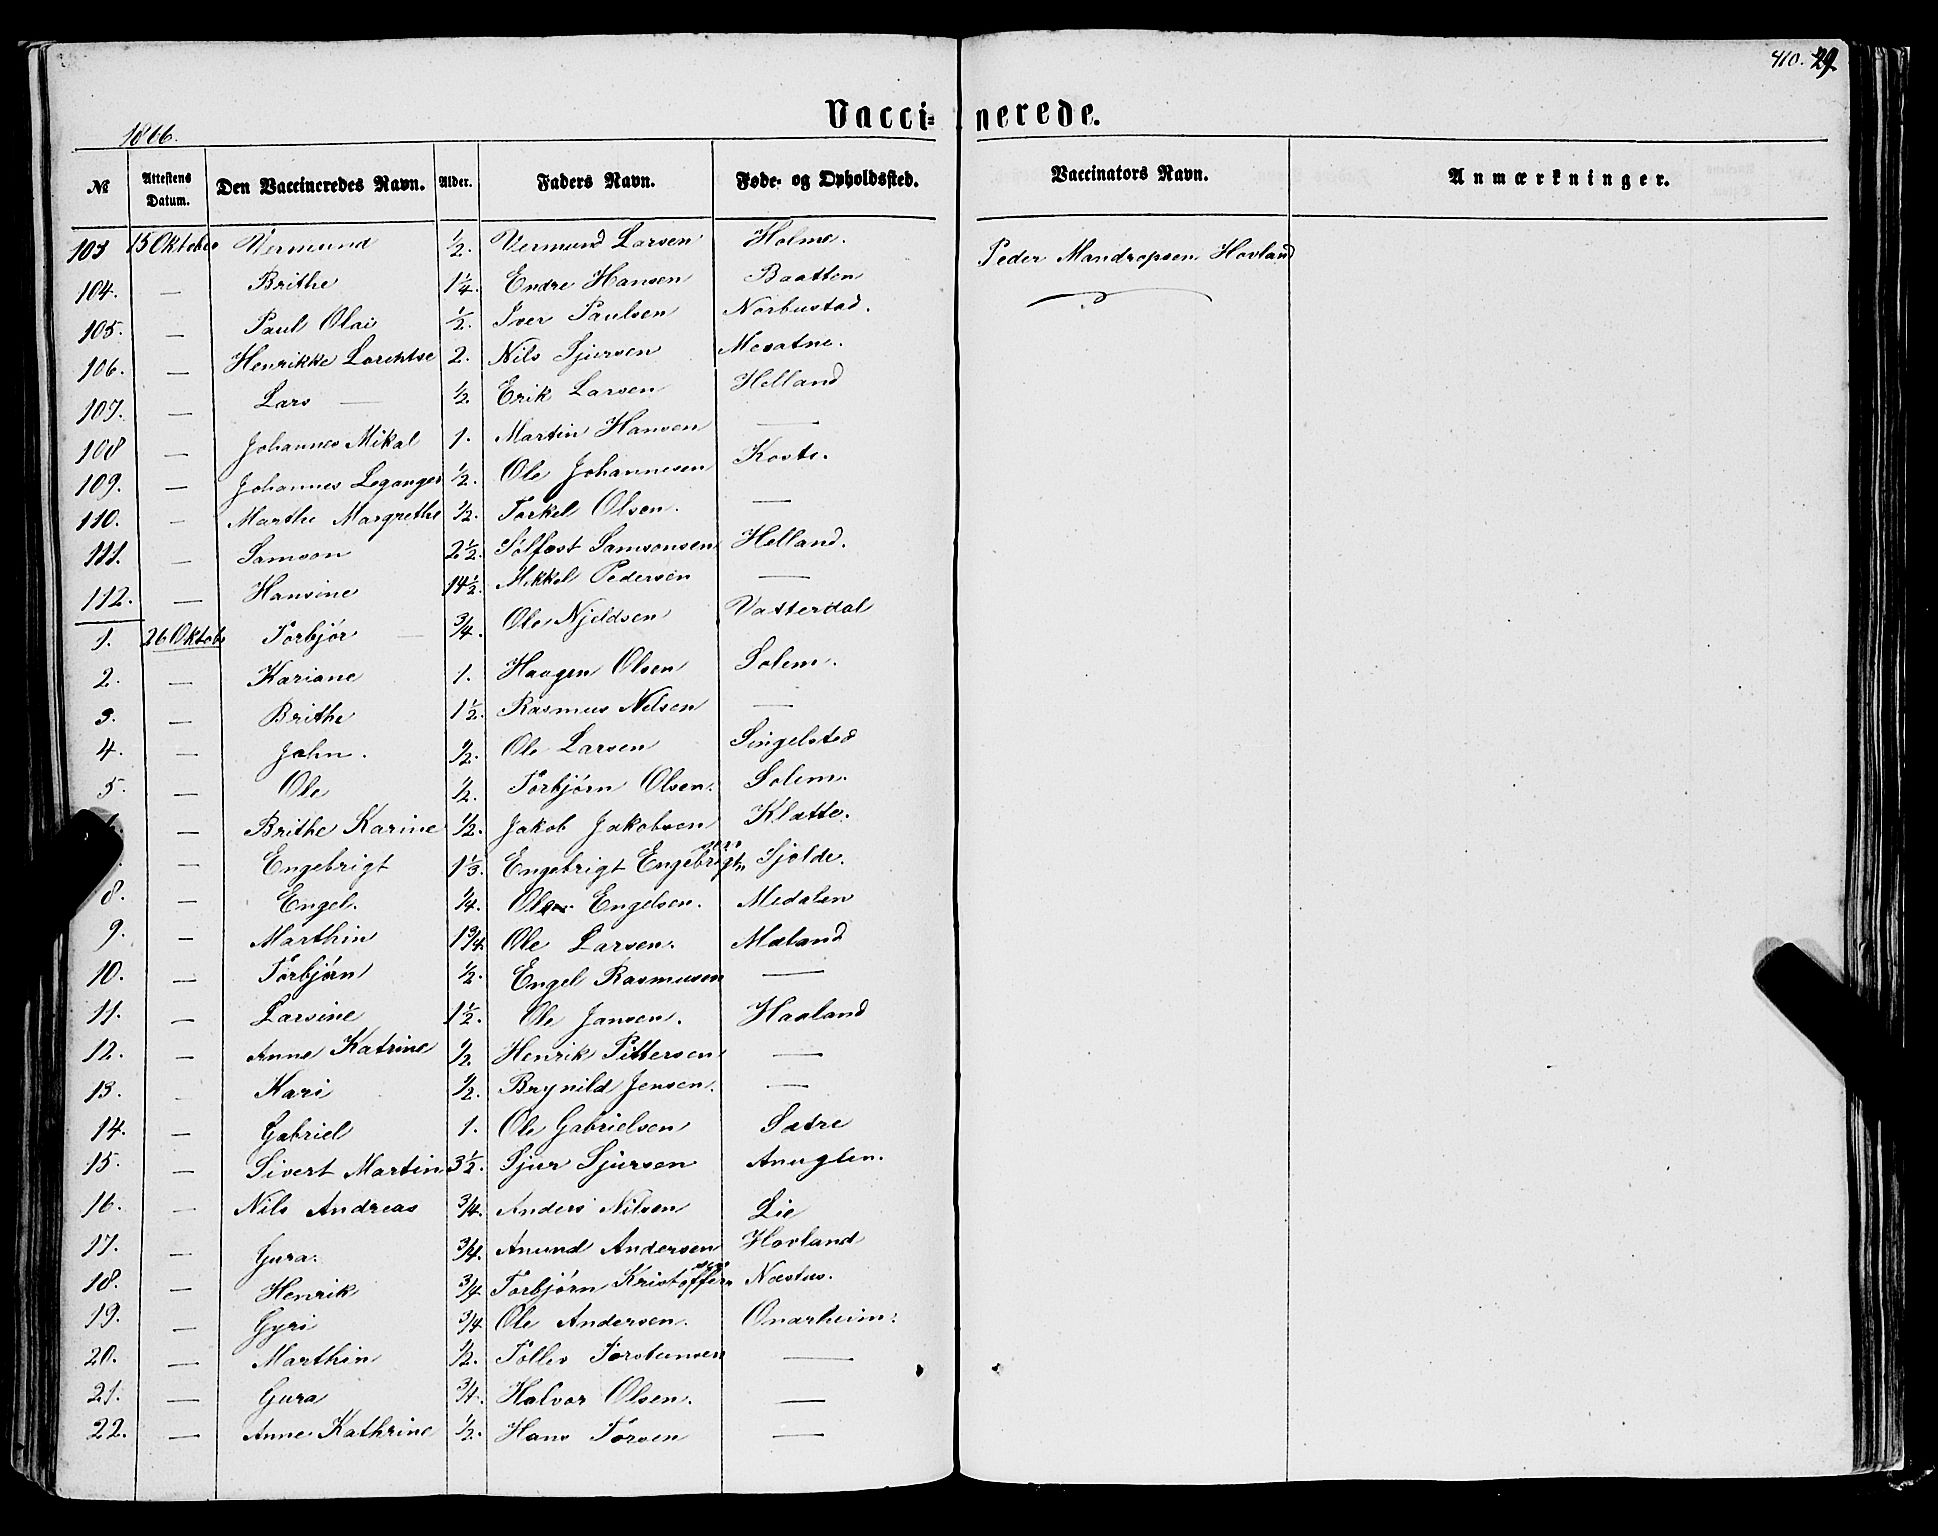 410. 29
Vaccinerede.
1866.
№ Attestens Datum. Den Vaccineredes Navn. Alder. Faders Navn. Føde- og Opholdssted. Vaccinators Navn. Anmærkninger.
103 15 Oktober Vermund ½. Vermund Larsen Holme. Peder Mandropsen Hovland
104. — Brithe 1¼. Endre Hansen Baatten
105. — Paul Olai ½. Iver Paulsen Norbustad.
106. — Henrikke Lorentse 2. Nils Sjursen Mesatne.
107. — Lars — ½. Erik Larsen Helland
108 — Johannes Mikal 1. Martin Hansen —
109. — Johannes Leganger ½. Ole Johannesen Koste.
110. — Marthe Margrethe ½. Torkel Olsen. —
111. — Samson 2½. Sølfast Samsonsen Helland.
112. — Hansine 14½. Mikkel Pedersen —
1. 26 Oktob Torbjør — ¾. Ole Njeldsen Vatterdal
2. — Kariane 1. Haagen Olsen Solem.
3. — Brithe 1½. Rasmus Nilsen —
4. — John. ½. Ole Larsen Singelsted
5. — Ole ½. Torbjørn Olsen. Solem.
— Brithe Karine ½. Jakob Jakobsen Klatte.
— Engebrigt 1⅓. Engebrigt Engebrigtsen Tjolde.
8. — Engel. ¼. Ole Engelsen. Medalen
9. — Marthin 1¾. Ole Larsen. Mæland
10. — Torbjørn ½. Engel Rasmusen —
11. — Larsine 1½. Ole Jansen. Haaland
12. — Anne Katrine ½. Henrik Pittersen —
13. — Kari ½. Brynild Jensen. —
14. — Gabriel 1. Ole Gabrielsen Sætre
15. — Sivert Martin 3½. Sjur Sjursen Anuglen.
16. — Nils Andreas ¾. Anders Nilsen Lie
17. — Gura. ¾. Anund Andersen Hovland
18. — Henrik ¾ Torbjørn Kristoffersen Næstus.
19. — Gyri ¾ Ole Andersen. Onarheim.
20. — Marthin ½. Tollev Torstensen —
21. — Gura ¾. Halvor Olsen. —
22. — Anne Kathrine ½. Hans Torsen —